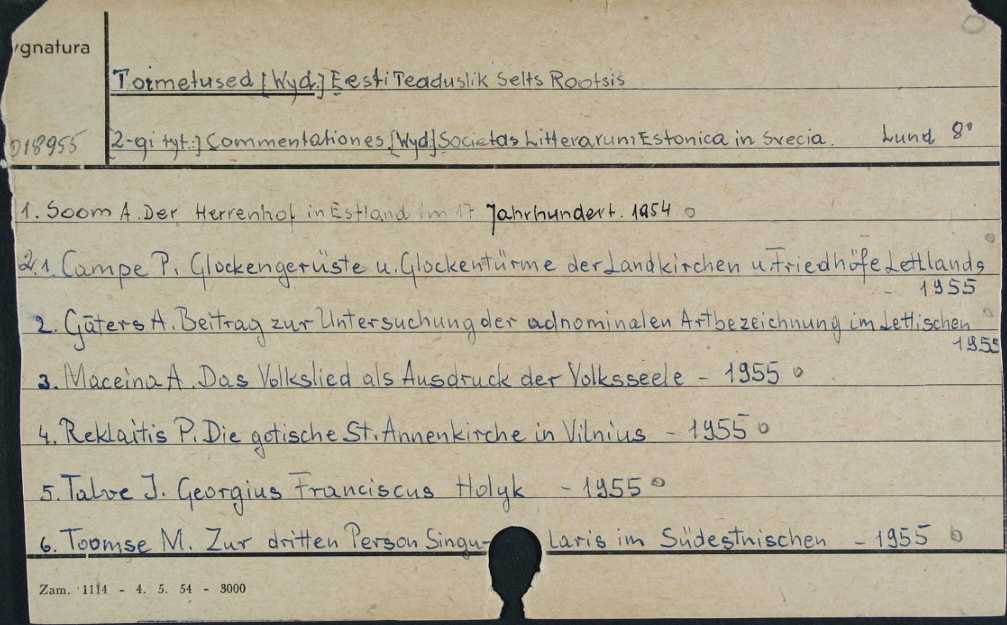 ygnatura
Toimetused [Wyd.] Eesti Teaduslik Selts Rootsis
D18955
[2-gi tyt.:] Commentationes [Wyd] Societas Litterarum Estonica in Svecia. Lund 8°
1. Soom A. Der Herrenhof in Estland im 17 Jahrhundert. 1954
2.1. Campe P. Glockengerüste u. Glockentürme der Landkirchen u. Friedhöfe Lettlands
- 1955
2. Gāters A. Beitrag zur Untersuchung der adnominalen Artbezeichnung im Lettischen
1955
3. Maceina A. Das Volkslied als Ausdruck der Volksseele - 1955
4. Reklaitis P. Die gotische St. Annenkirche in Vilnius - 1955
5. Talve J. Georgius Franciscus Holyk - 1955
6. Toomse M. Zur dritten Person Singu- laris im Südestnischen - 1955
Zam. 1114 - 4. 5. 54 - 3000